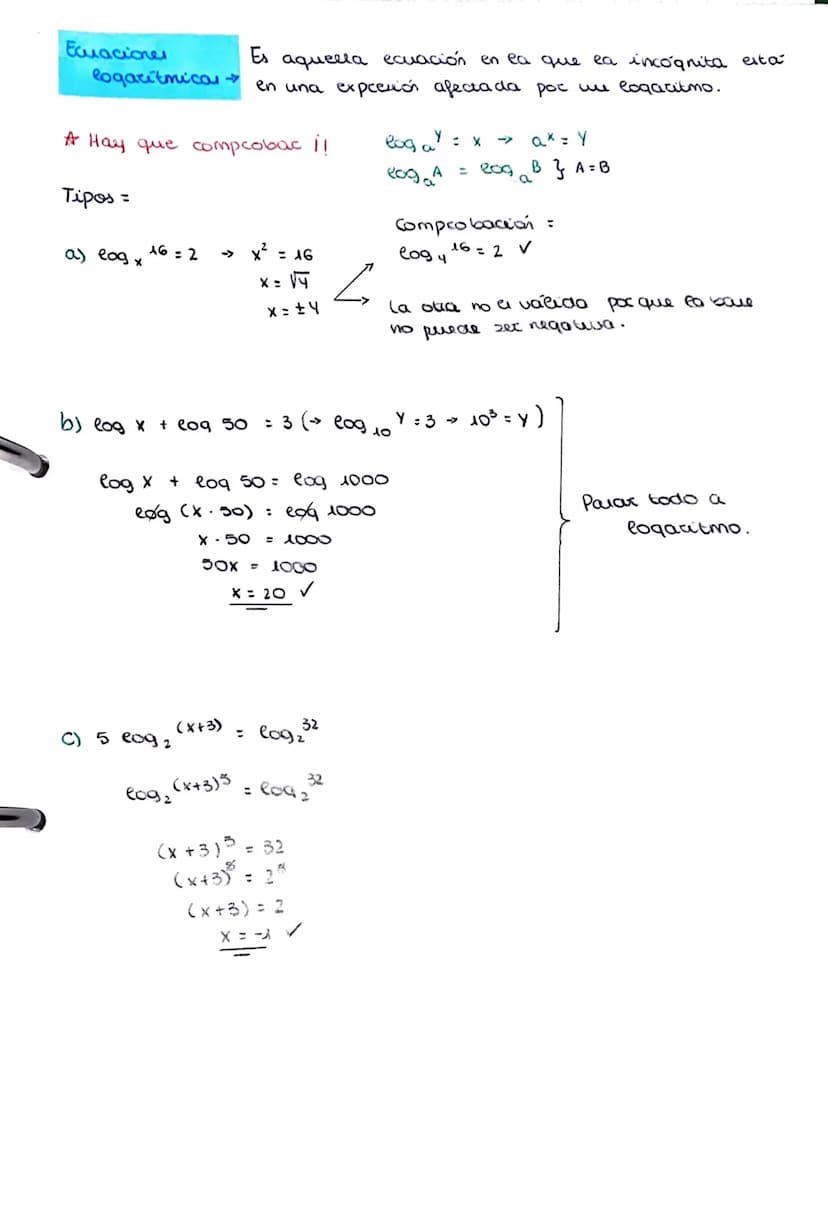 Ecuaciones
logarítmicas →
Es aquella ecuación en la que la incógnita está
en una expresión afectada por un logaritmo.
* Hay que comprobar ¡!
log_a^y = x → a^x = y
log_a^A = log_a^B } A = B
Tipos =
a) log_x^16 = 2 → x² = 16
x = √4
x = ±4
Comprobación =
log_4^16 = 2 ✓
La otra no es válida porque la base
no puede ser negativa.
b) log x + log 50 = 3 (→ log_10^y = 3 → 10³ = y)
log x + log 50 = log 1000
log (x · 50) = log 1000
x · 50 = 1000
50x = 1000
x = 20 ✓
Pasar todo a
logaritmo.
c) 5 log_2^(x+3) = log_2^32
log_2^(x+3)^5 = log_2^32
(x+3)^5 = 32
(x+3)^5 = 2^5
(x+3) = 2
x = -1 ✓